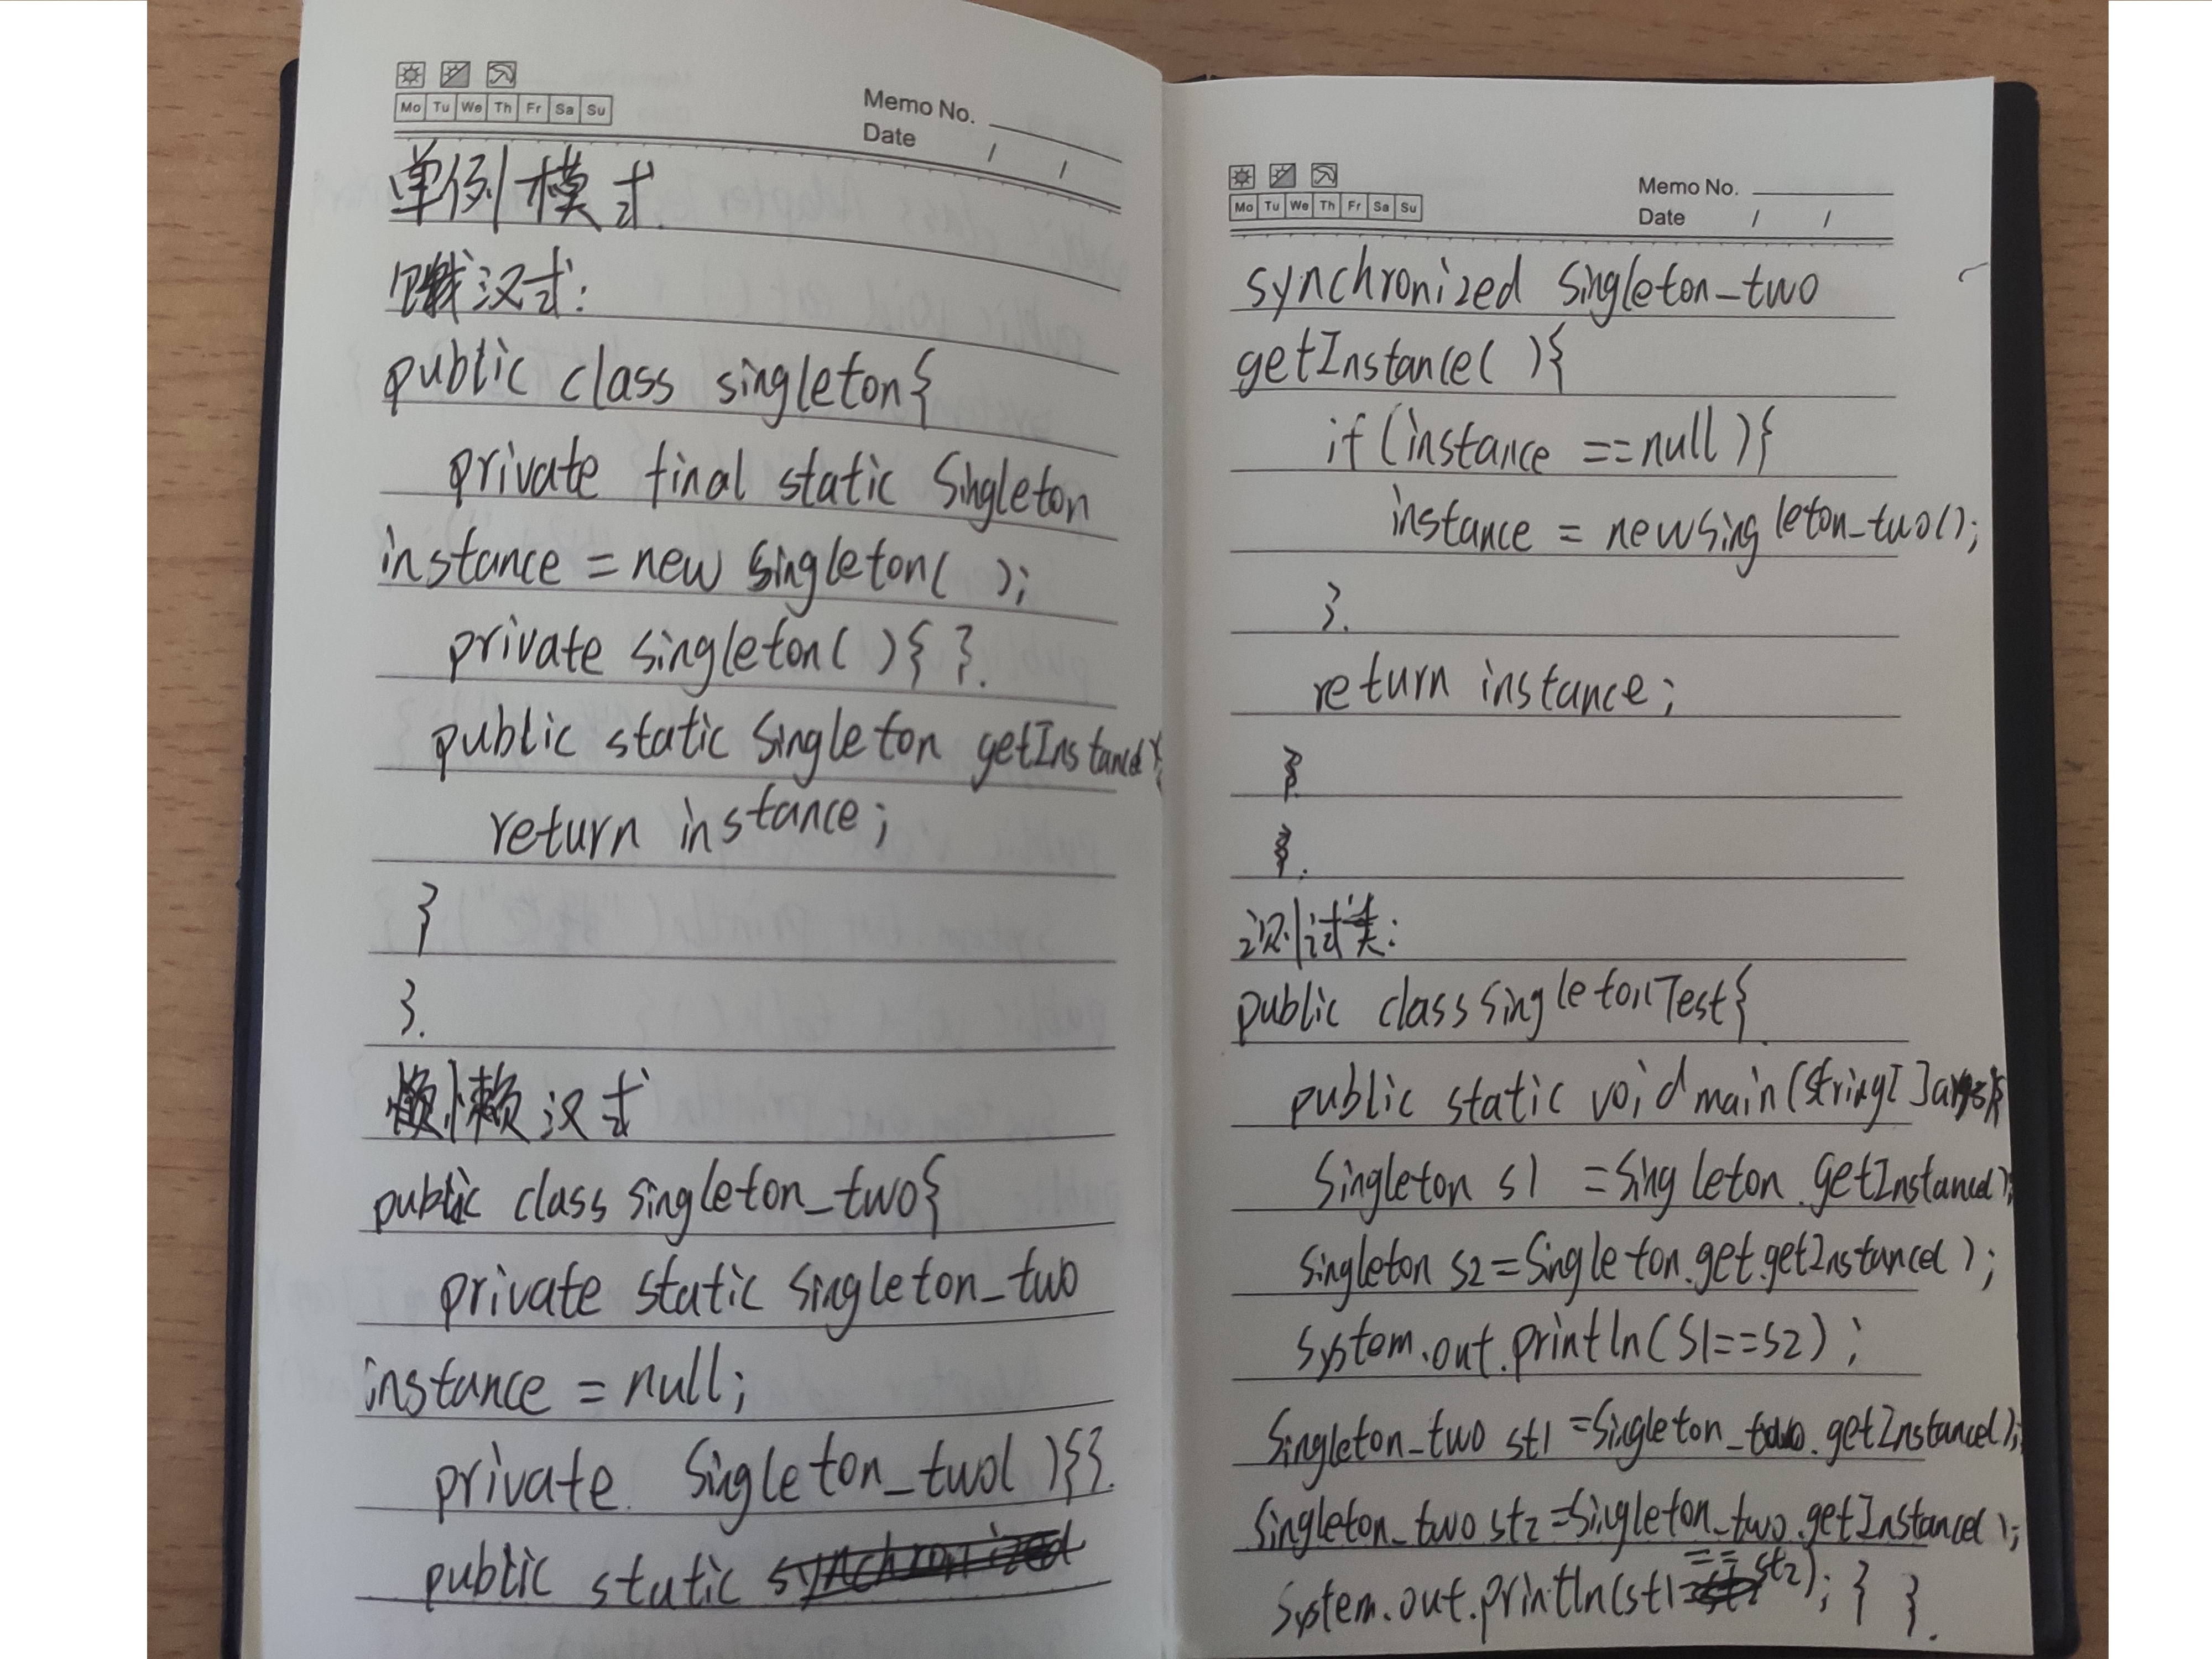 Mo Tu We Th Fr Sa Su
Memo No.
Date / /
单例模式.
饿汉式:
public class singleton{
private final static Singleton
instance = new Singleton( );
private singleton( ){ }.
public static Singleton getInstance(){
return instance;
}
}.
懒汉式
public class Singleton_two{
private static Singleton_two
instance = null;
private Singleton_two( ){}.
public static
Mo Tu We Th Fr Sa Su
Memo No.
Date / /
synchronized Singleton_two
getInstance( ){
if(instance ==null){
instance = new Singleton_two();
}.
return instance;
}
}.
测试类:
public class SingletonTest{
public static void main(String[ ]args){
Singleton s1 =Singleton.getInstance();
Singleton s2=Singleton.get.getInstance( );
System.out.println(S1==S2);
Singleton_two st1 =Singleton_two.getInstance();
Singleton_two st2 =Singleton_two.getInstance( );
System.out.println(st1==st2); } }.